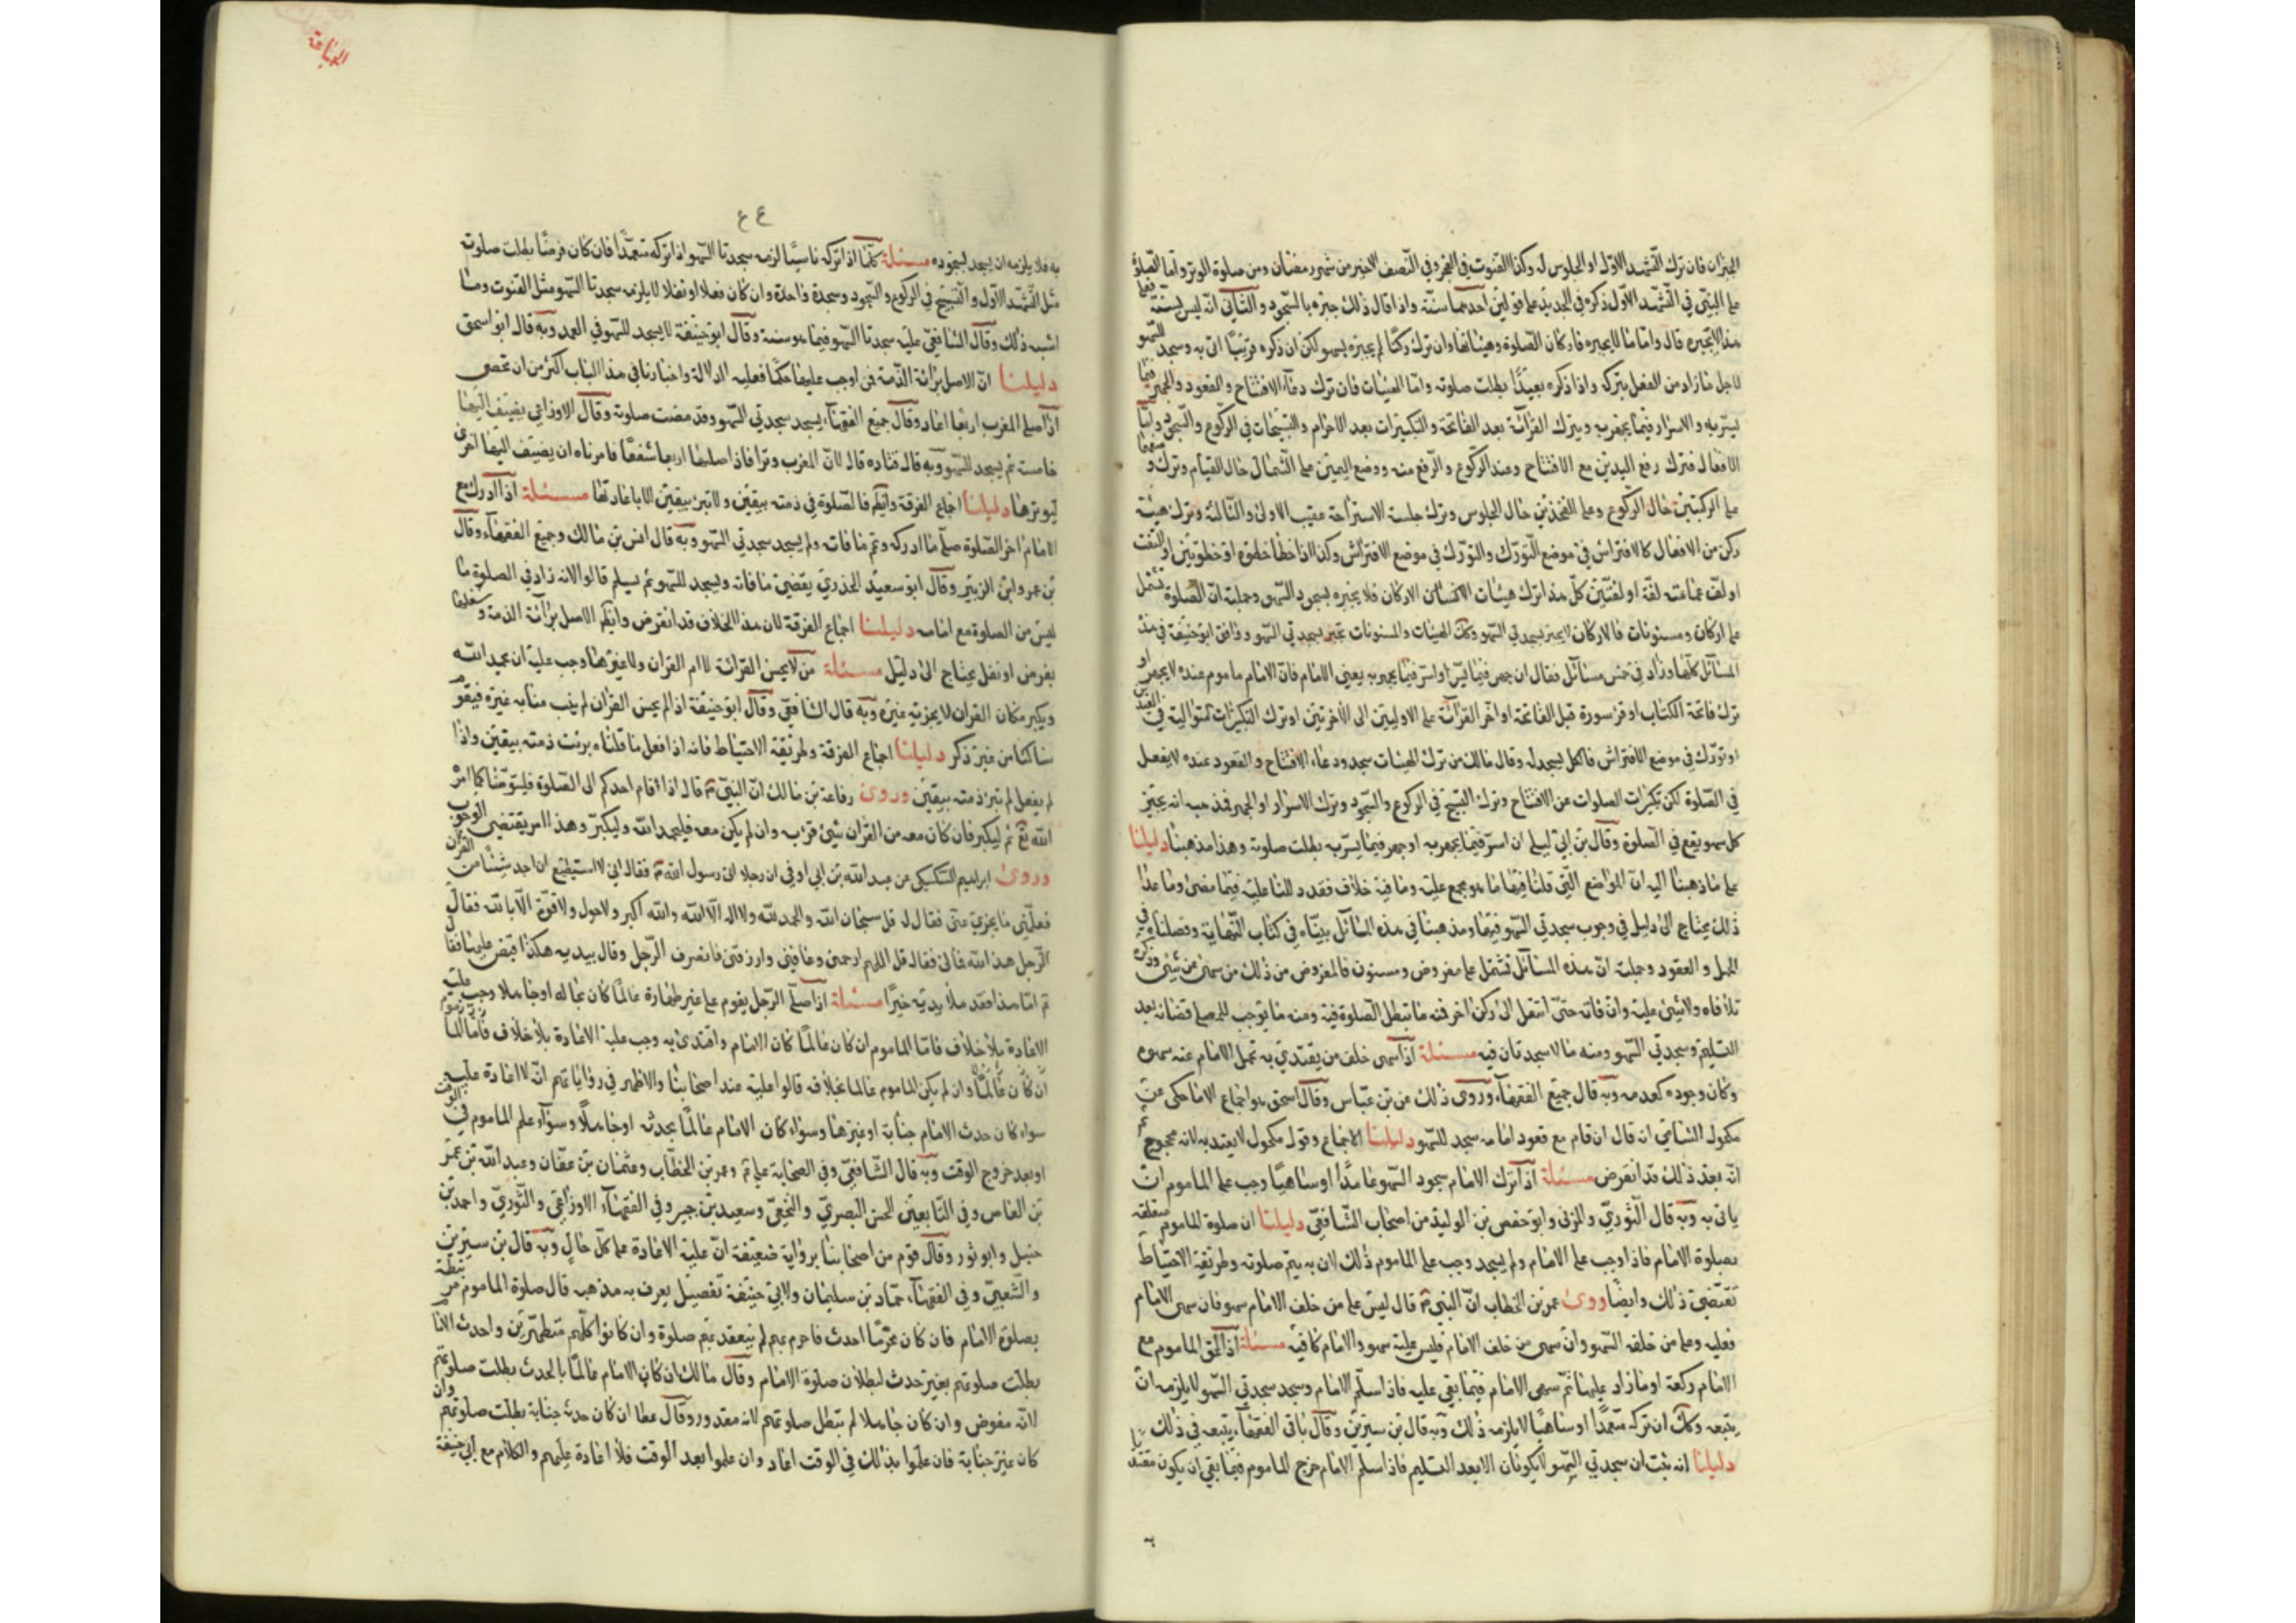 الجبران فان ترك التشهد الاول او الجلوس له وكذا القنوت في الفجر وفي النصف الاخير من شهر رمضان ومن صلوة الوتر واما الصلوة
على النبي في التشهد الاول ذكره في الجديد على قولين احدهما سنة واذا قال ذلك جبره بالسجود والثاني انه ليس بسنة فعلى
هذا لا يجبره قال واما ما لا يجبره فاركان الصلوة وهيئاتها وان ترك ركنا لم يجبره بسهو لكن ان ذكره قريبا اتى به وسجد للسهو
لاجل ما زاد من الفعل بتركه واذا ذكره بعيدا بطلت صلوته واما الهيئات فان ترك دعاء الافتتاح والقعود والجهر فيما
يسر به والاسرار فيما يجهر به ويترك القراءة بعد الفاتحة والتكبيرات بعد الاحرام والتسبيحات في الركوع والسجود واما
الافعال فترك رفع اليدين مع الافتتاح وعند الركوع والرفع منه ووضع اليمين على الشمال حال القيام وترك وضعها
على الركبتين حال الركوع وعلى الفخذين حال الجلوس وترك جلسة الاستراحة عقيب الاولى والثالثة وترك هيئة
ركن من الافعال كالافتراش في موضع التورك والتورك في موضع الافتراش وكذا اذا خطا خطوة او خطوتين او التفت
او لف عمامته لفة او لفتين كل هذا ترك هيئات الاركان فلا يجبره بسجود السهو وجملته ان الصلوة تشتمل
على اركان ومسنونات فالاركان لا يجبر بسجدتي السهو وكك الهيئات والمسنونات تجبر بسجدتي السهو ووافق ابو حنيفة في هذه
المسائل كلها وزاد في خمس مسائل فقال ان جهر فيما يسر او اسر فيما يجهر به يعني الامام فان الامام ماموم عنده لا يجهر او
ترك فاتحة الكتاب او قرء سورة قبل الفاتحة او اخر القراءة على الاوليين الى الاخرتين او ترك التكبيرات المتوالية في العيدين
او تورك في موضع الافتراش فالكل يسجد له وقال مالك من ترك الهيئات سجد ودعاء الافتتاح والقعود عنده لا يفعل
في الصلوة لكن تكبيرات الصلوات عن الافتتاح وترك التسبيح في الركوع والسجود وترك الاسرار او الجهر فمذهبه انه يجبر
كل سهو يقع في الصلوة وقال بن ابي ليلى ان اسر فيما يجهر به او جهر فيما يسر به بطلت صلوته وهذا مذهبنا دليلنا
على ما ذهبنا اليه ان المواضع التي قلنا فيها ما هو مجمع عليه وما فيه خلاف فقد دللنا عليه فيما مضى وما عدا
ذلك يحتاج الى دليل في وجوب سجدتي السهو فيها ومذهبنا في هذه المسائل بيناه في كتاب النهاية وفصلناه في
الجمل والعقود وجملته ان هذه المسائل تشتمل على مفروض ومسنون فالمفروض من ذلك من سهى عن شئ وذكره
تلافاه ولا شئ عليه وان فاته حتى انتقل الى ركن اخر فمنه ما تبطل الصلوة فيه ومنه ما يوجب للمصلي قضائه بعد
التسليم وسجدتي السهو ومنه ما لا سجدتان فيه مسئلة اذا سهى خلف من يقتدي به تحمل الامام عنه سهوه
وكان وجوده كعدمه وبه قال جميع الفقهاء وروى ذلك عن بن عباس وقال اسحق هو اجماع الا ما حكى عن
مكحول الشامي انه قال ان قام مع قعود امامه سجد للسهو دليلنا الاجماع وقول مكحول لا يعتد به لانه محجوج ثم
انه بعد ذلك قد انقرض مسئلة اذا ترك الامام سجود السهو عامدا او ساهيا وجب على الماموم ان
ياتي به وبه قال الثوري والمزني وابو حفص بن الوليد من اصحاب الشافعي دليلنا ان صلوة الماموم متعلقة
بصلوة الامام فاذا وجب على الامام ولم يسجد وجب على الماموم ذلك لان به يتم صلوته وطريقة الاحتياط
تقتضي ذلك وايضا روى عمر بن الخطاب ان النبي ص قال ليس على من خلف الامام سهو فان سهى الامام
فعليه وعلى من خلفه السهو وان سهى من خلف الامام فليس عليه سهو والامام كافيه مسئلة اذا لحق الماموم مع
الامام ركعة او ما زاد عليها ثم سهى الامام فيما بقي عليه فاذا سلم الامام وسجد سجدتي السهو لا يلزمه ان
يتبعه وكك ان تركه متعمدا او ساهيا لا يلزمه ذلك وبه قال بن سيرين وقال باقي الفقهاء يتبعه في ذلك
دليلنا انه ثبت ان سجدتي السهو لا يكونان الا بعد التسليم فاذا سلم الامام خرج الماموم فيما بقي ان يكون مقتديا
الرابعة
٤٤
به فلا يلزمه ان يسجد لسجوده مسئلة كلما اذا تركه ناسيا لزمه سجدتا السهو اذا تركه متعمدا فان كان فرضا بطلت صلوته
مثل التشهد الاول والتسبيح في الركوع والسجود وسجدة واحدة وان كان فعلا او نفلا لا يلزمه سجدتا السهو مثل القنوت وما
اشبه ذلك وقال الشافعي عليه سجدتا السهو فيما هو سنة وقال ابو حنيفة لا يسجد للسهو في العمد وبه قال ابو اسحق
دليلنا ان الاصل براءة الذمة فمن اوجب عليها حكما فعليه الدلالة واخبارنا في هذا الباب اكثر من ان تحصى
اذا صلى المغرب اربعا اعاد وقال جميع الفقهاء يسجد سجدتي السهو وقد مضت صلوته وقال الاوزاعي يضيف اليها
خامسة ثم يسجد للسهو وبه قال قتاده قال لان المغرب وترا فاذا صليها اربعا شفعا فامرناه ان يضيف اليها اخرى
ليوترها دليلنا اجماع الفرقة وايضا فالصلوة في ذمته بيقين ولا تبرئ بيقين الا باعادتها مسئلة اذا ادرك مع
الامام اخر الصلوة صلى ما ادركه وتم ما فاته ولم يسجد سجدتي السهو وبه قال انس بن مالك وجميع الفقهاء وقال
بن عمر وابن الزبير وقال ابو سعيد الخدري يقضي ما فاته ويسجد للسهو ثم يسلم قالوا لانه زاد في الصلوة ما
ليس من الصلوة مع امامه دليلنا اجماع الفرقة لان هذا الخلاف قد انقرض وايضا الاصل براءة الذمة وشغلها
بفرض او نفل يحتاج الى دليل مسئلة من لا يحسن القراءة لا ام القران ولا غيرها وجب عليه ان يحمد الله
ويكبر مكان القران لا يجزيه غيره وبه قال الشافعي وقال ابو حنيفة اذا لم يحسن القران لم ينب منابه غيره فيقوم
ساكتا من غير ذكر دليلنا اجماع الفرقة وطريقة الاحتياط فانه اذا فعل ما قلناه برئت ذمته بيقين واذا
لم يفعل لم تبرء ذمته بيقين وروى رفاعة بن مالك ان النبي ص قال اذا قام احدكم الى الصلوة فليتوضأ كما امر
الله تع ثم ليكبر فان كان معه من القران شئ قرء به وان لم يكن معه فليحمد الله وليكبر وهذا امر يقتضي الوجوب
وروى ابراهيم السكسكي عن عبد الله بن ابي اوفى ان رجلا اتى رسول الله ص فقال اني لا استطيع ان اجد شيئا من القران
فعلمني ما يجزي عني فقال له قل سبحان الله والحمد لله ولا اله الا الله والله اكبر ولا حول ولا قوة الا بالله فقال
الرجل هذا لله فما لي فقال قل اللهم ارحمني وعافني وارزقني فانصرف الرجل وقال بيديه هكذا قبض عليها فقال
ص اما هذا فقد ملأ يديه خيرا مسئلة اذا صلى الرجل بقوم على غير طهارة عالما كان بحاله او جاهلا وجب عليه
الاعادة بلا خلاف فاما الماموم ان كان عالما كان الامام واقتدى به وجب عليه الاعادة بلا خلاف فاما
ان كان عالما وان لم يكن الماموم عالما بخلافه قالوا عليه عند اصحابنا والاظهر في رواياتهم انه لا اعادة عليه
سواء كان حدث الامام جنابة او غيرها وسواء كان الامام عالما بحدثه او جاهلا وسواء علم الماموم في الوقت
او بعد خروج الوقت وبه قال الشافعي وفي الصحابة علي ع وعمر بن الخطاب وعثمان بن عفان وعبد الله بن عمر
بن العاص وفي التابعين الحسن البصري والنخعي وسعيد بن جبير وفي الفقهاء الاوزاعي والثوري واحمد بن
حنبل وابو ثور وقال قوم من اصحابنا برواية ضعيفة ان عليه الاعادة على كل حال وبه قال بن سيرين
والشعبي وفي الفقهاء حماد بن سليمان ولابي حنيفة تفصيل يعرف به مذهبه قال صلوة الماموم مرتبطة
بصلوة الامام فان كان محرما احدث فاحرم بهم لم ينعقد بهم صلوة وان كانوا كلهم متطهرين واحدث الامام
بطلت صلوتهم بغير حدث لبطلان صلوة الامام وقال مالك ان كان الامام عالما بالحدث بطلت صلوتهم
لانه مفوض وان كان جاهلا لم تبطل صلوتهم لانه معذور وقال عطا ان كان حدثه جنابة بطلت صلوتهم وان
كان غير جنابة فان علموا بذلك في الوقت اعاد وان علموا بعد الوقت فلا اعادة عليهم والكلام مع ابي حنيفة